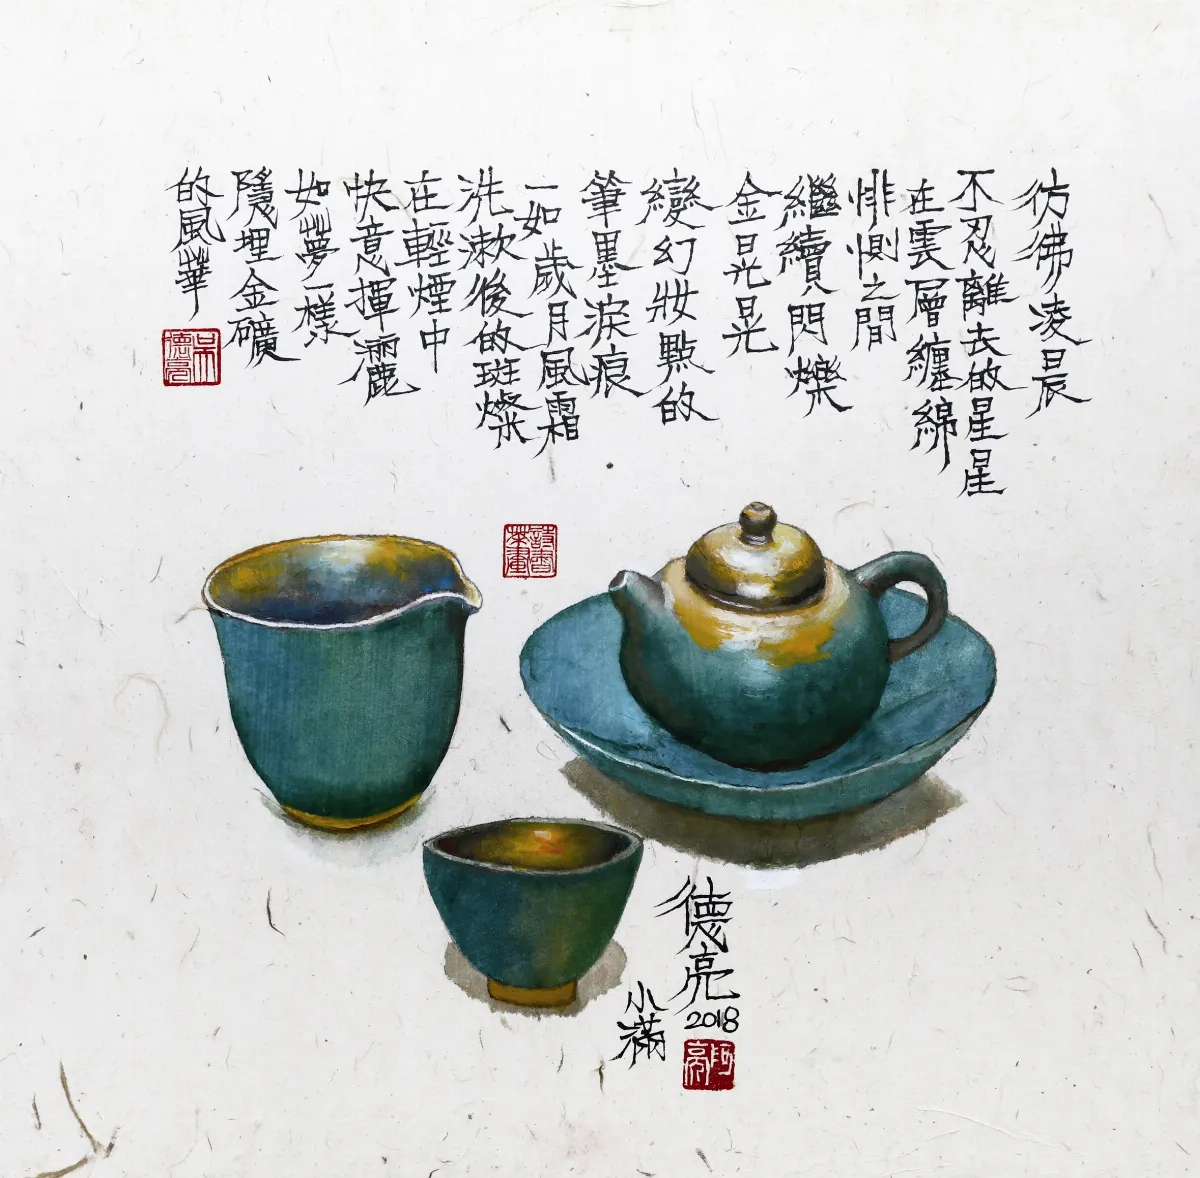 彷彿凌晨
不忍離去的星星
在雲層纏綿
悱惻之間
繼續閃爍
金晃晃
變幻妝點的
筆墨淚痕
一如歲月風霜
洗漱後的斑燦
在輕煙中
快意揮灑
如夢一樣
隱埋金礦
的風華
吳德亮
詩書茶畫
德亮
2018
小滿
阿亮